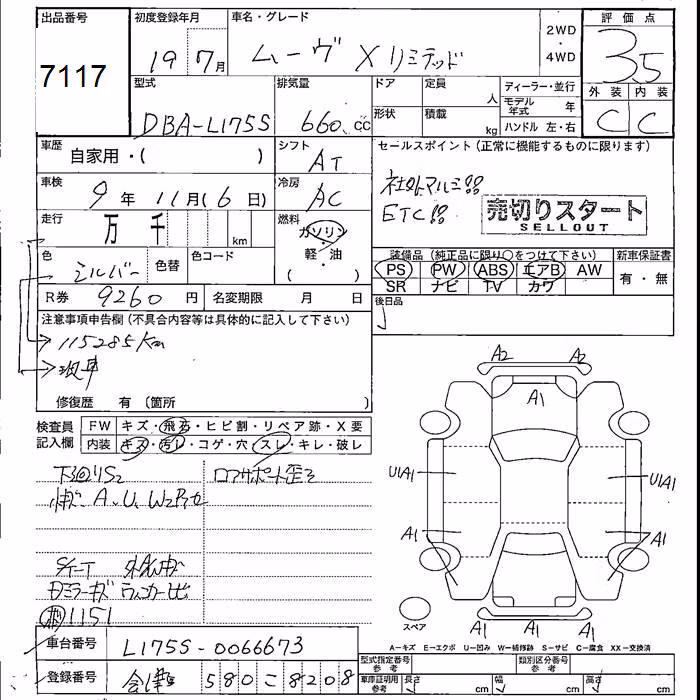 出品番号
7117
初度登録年月
19 7月
車名・グレード
ムーヴ Xリミテッド
2WD
・
4WD
評価点
3.5
外装 内装
C C
型式
DBA-L175S
排気量
660 cc
ドア
形状
定員
人
積載
kg
ディーラー・並行
モデル年式 年
ハンドル 左・右
車歴
自家用・( )
シフト
AT
セールスポイント (正常に機能するものに限ります)
社外アルミ!!
ETC!!
売切りスタート
SELLOUT
車検
9年 11月(6日)
冷房
AC
走行
万 千 km
燃料
ガソリン
・
軽・油
( )
色
シルバー
色替
色コード
装備品 (純正品に限り○をつけて下さい)
PS PW ABS エアB AW
SR ナビ TV カワ
新車保証書
有・無
R券 9260円
名変期限 月 日
後日品
注意事項申告欄 (不具合内容等は具体的に記入して下さい)
115285Km
現車
修復歴 有 (箇所
検査員
記入欄
FW キズ・飛石・ヒビ割・リペア跡・X要
内装 キズ・汚レ・コゲ・穴・スレ・キレ・破レ
下回りS2
ロアサポート歪ミ
A.U.W2
1151
A2 A2
A1
U1A1 U1A1
A1 A1
A1 A1 A1
スペア
A-キズ E-エクボ U-凹み W-補修跡 S-サビ C-腐食 XX-交換済
車台番号
L175S-0066673
登録番号
会津 580 こ 8208
型式指定番号
参考
類別区分番号
参考
車庫証明用
参考
長さ cm 幅 cm 高さ cm